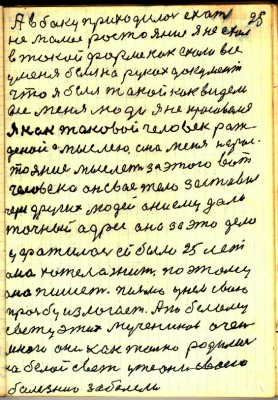 А в баку приходилос ехат 25
не малое ростояние я не ехал
в такой форме как ехали все
у меня был на руках документ
что я был такой как видели
все меня люди я не красавел
Я как таковой человек раж-
деной с мыслею, она меня
тояние мыслет за этого вот
человека он свае тело заставил
через других людей она ему дал
точный адрес она за это дело
ухватилас ей было 25 лет
она хотела жит поэтому
она пишет. писмо у ней свою
прозбу излогает. А по белому
свету этих мучеников очен
много они как толко родилис
на белой свет уже они своею
болезнию заболели